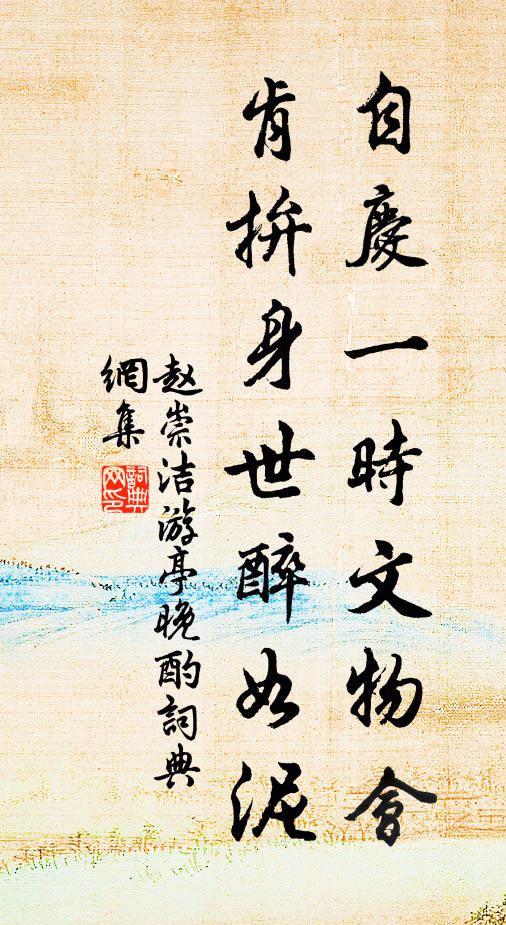 自慶一時文物會
肯拚身世醉如泥
赵崇洁游亭晚酌詞典
網集
詞典
网印